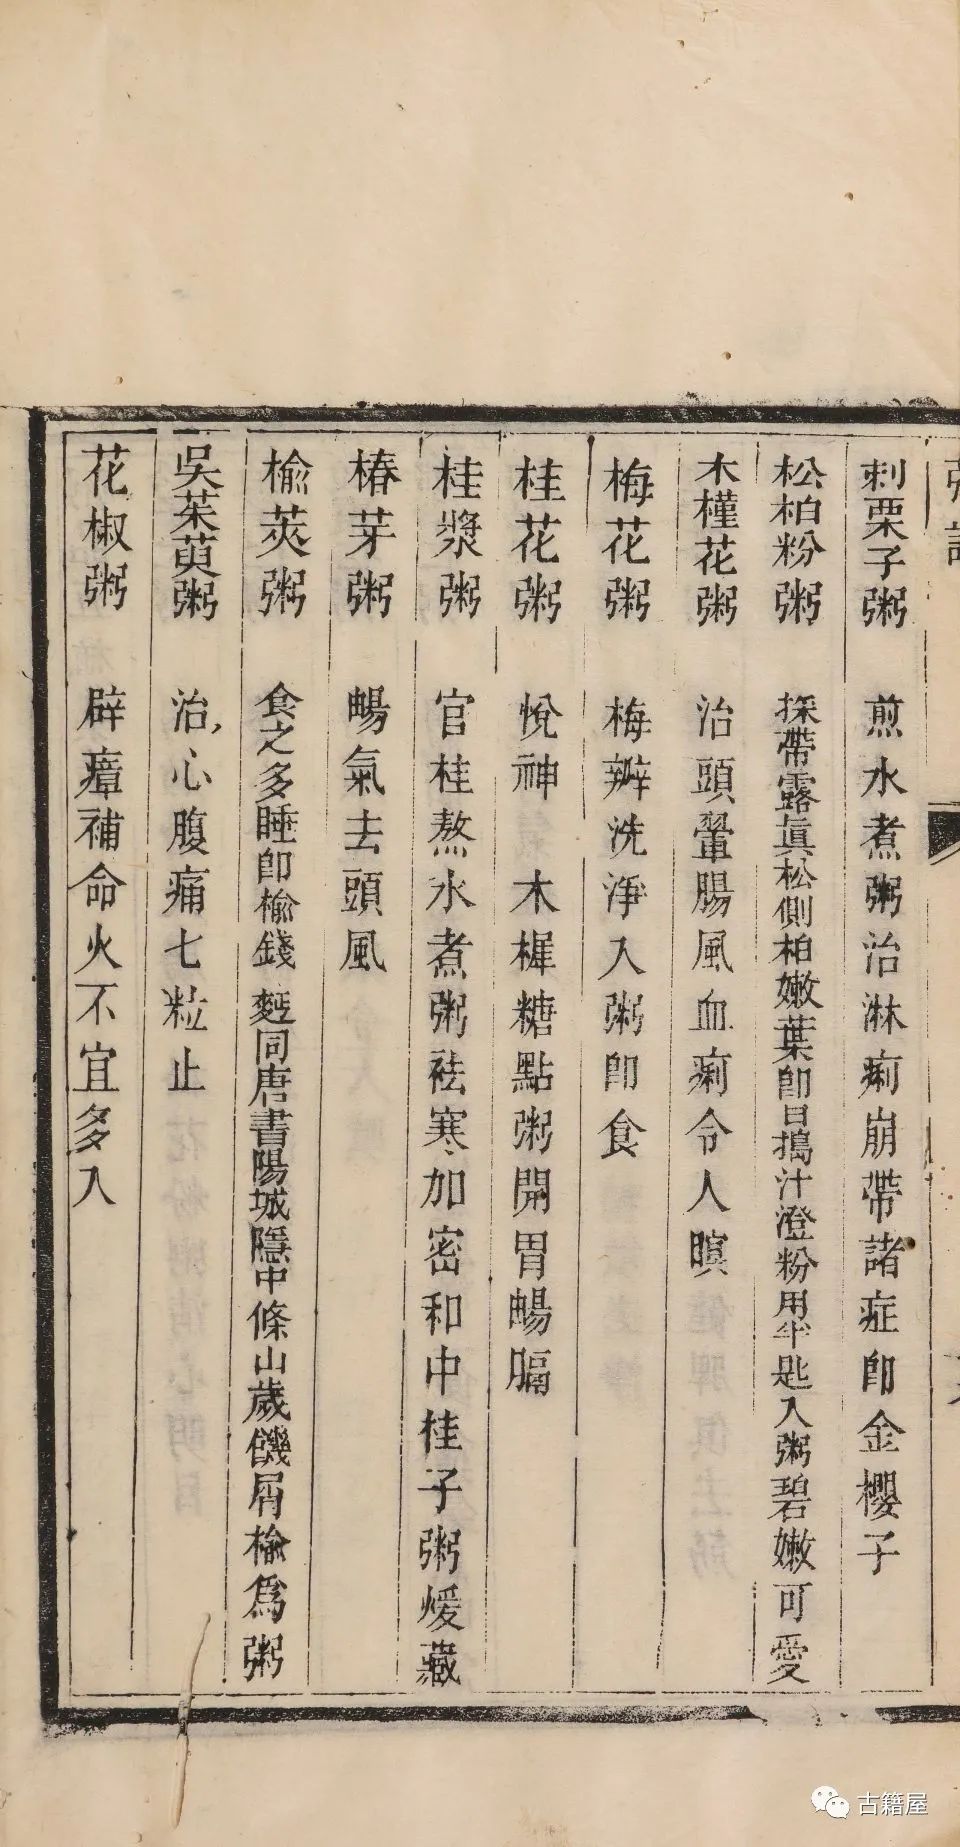 刺栗子粥 煎水煮粥治淋痢崩帶諸症卽金櫻子
松柏粉粥 採帶露眞松側柏嫩葉卽日搗汁澄粉用半匙入粥碧嫩可愛
木槿花粥 治頭暈腸風血痢令人瞑
梅花粥 梅瓣洗淨入粥卽食
桂花粥 悅神 木樨糖點粥開胃暢膈
桂漿粥 官桂熬水煮粥祛寒加密和中桂子粥煖藏
椿芽粥 暢氣去頭風
楡莢粥 食之多睡卽楡錢 麫同唐書陽城隱中條山歲饑屑楡爲粥
吳茱萸粥 治心腹痛七粒止
花椒粥 辟瘴補命火不宜多入
古籍屋